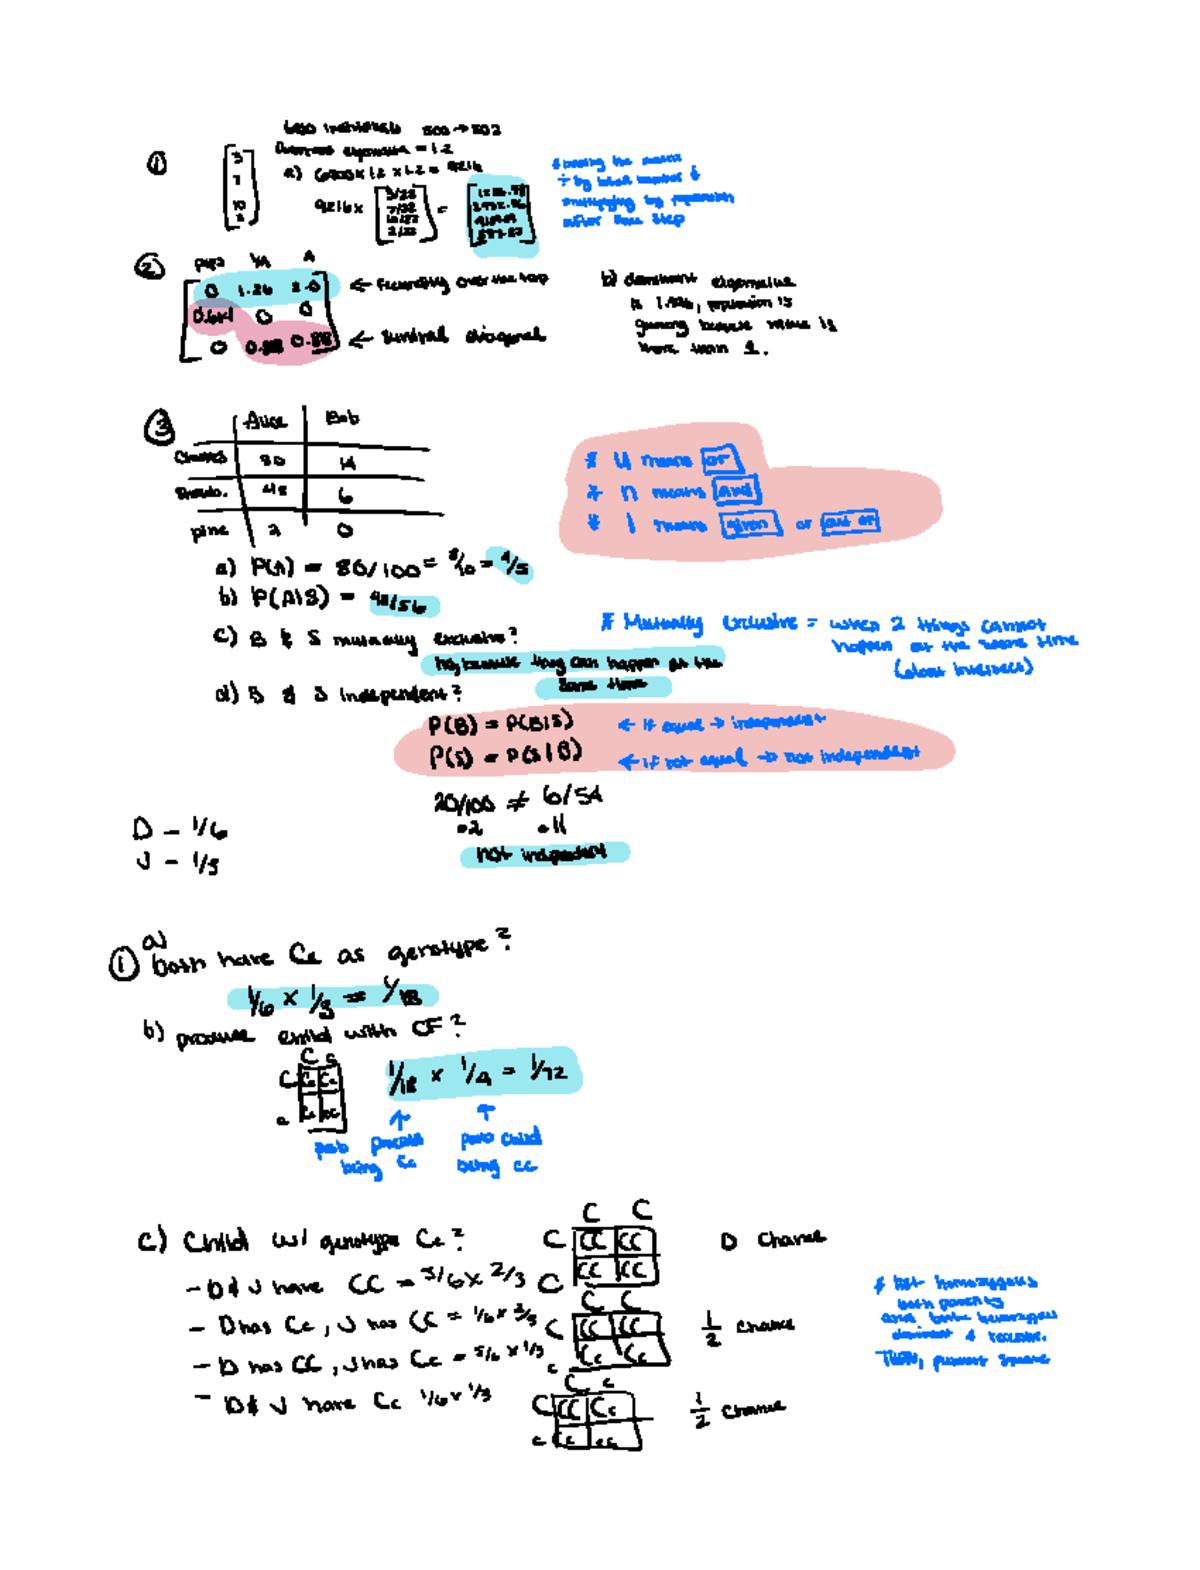 individuals 500 → 502
① Dominant eigenvalue = 1.2
3
7
10
a) × 1.2 × 1.2 = 9216
9216 × [3/22 7/22 10/22 2/22] =
* the
÷ by total number &
multiplying by population
after time step
② pups YA A
0 1.26 2.0 ← fecundity over the top
0 0
0 0.88 0.88 ← survival diagonal
b) dominant eigenvalue
is , population is
growing because value is
more than 1.
③ Alice Bob
80 14
48 6
pine 2 0
* U means or
* ∩ means and
* | means given or out of
a) P(A) = 80/100 = 8/10 = 4/5
b) P(A|S) = 48/56
c) B & S mutually exclusive?
no, because they can happen at the
same time
* Mutually exclusive = when 2 things cannot
happen at the same time
(don't intersect)
d) B & S independent?
P(B) = P(B|S) ← if equal → independent
P(S) = P(S|B) ← if not equal → not independent
20/100 ≠ 6/54
.2 .11
not independent
D - 1/6
J - 1/3
① a) both have Cc as genotype?
1/6 × 1/3 = 1/18
b) produce child with CF?
C c
C CC Cc
c Cc cc
1/18 × 1/4 = 1/72
prob parents being Cc
prob child being cc
c) Child w/ genotype Cc?
- D & J have CC = 5/6 × 2/3
- D has Cc, J has CC = 1/6 × 2/3
- D has CC, J has Cc = 5/6 × 1/3
- D & J have Cc 1/6 × 1/3
C C
C CC CC
C CC CC
0 chance
C C
C CC CC
c Cc Cc
1/2 chance
C c
C CC Cc
c Cc cc
1/2 chance
* homozygous
both parents
and homozygous
dominant & recessive.
Then, punnett square